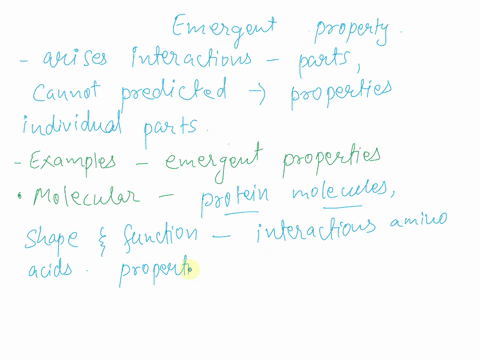 Emergent property.
- arises interactions - parts,
Cannot predicted → properties
individual parts.
- Examples - emergent properties
• Molecular - protein molecules,
Shape & function - interactions amino
acids. propert